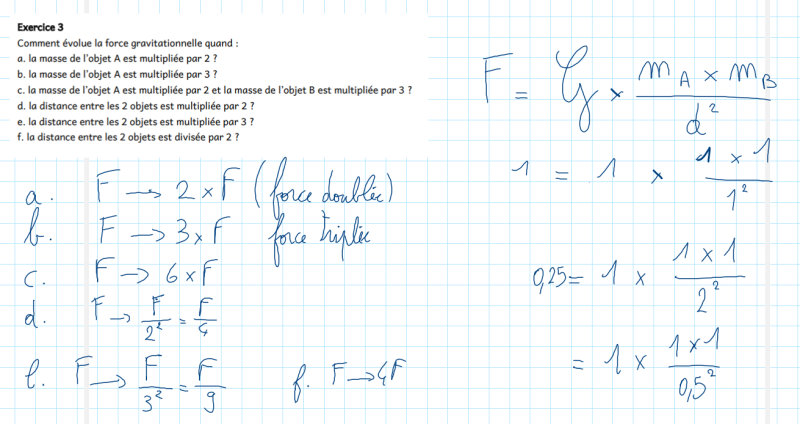 Exercice 3
Comment évolue la force gravitationnelle quand :
a. la masse de l'objet A est multipliée par 2 ?
b. la masse de l'objet A est multipliée par 3 ?
c. la masse de l'objet A est multipliée par 2 et la masse de l'objet B est multipliée par 3 ?
d. la distance entre les 2 objets est multipliée par 2 ?
e. la distance entre les 2 objets est multipliée par 3 ?
f. la distance entre les 2 objets est divisée par 2 ?
F = G × (m_A × m_B) / d²
1 = 1 × (1 × 1) / 1²
0,25 = 1 × (1 × 1) / 2²
= 1 × (1 × 1) / 0,5²
a. F → 2 × F (force doublée)
b. F → 3 × F force triplée
c. F → 6 × F
d. F → F/2² = F/4
e. F → F/3² = F/9
f. F → 4F